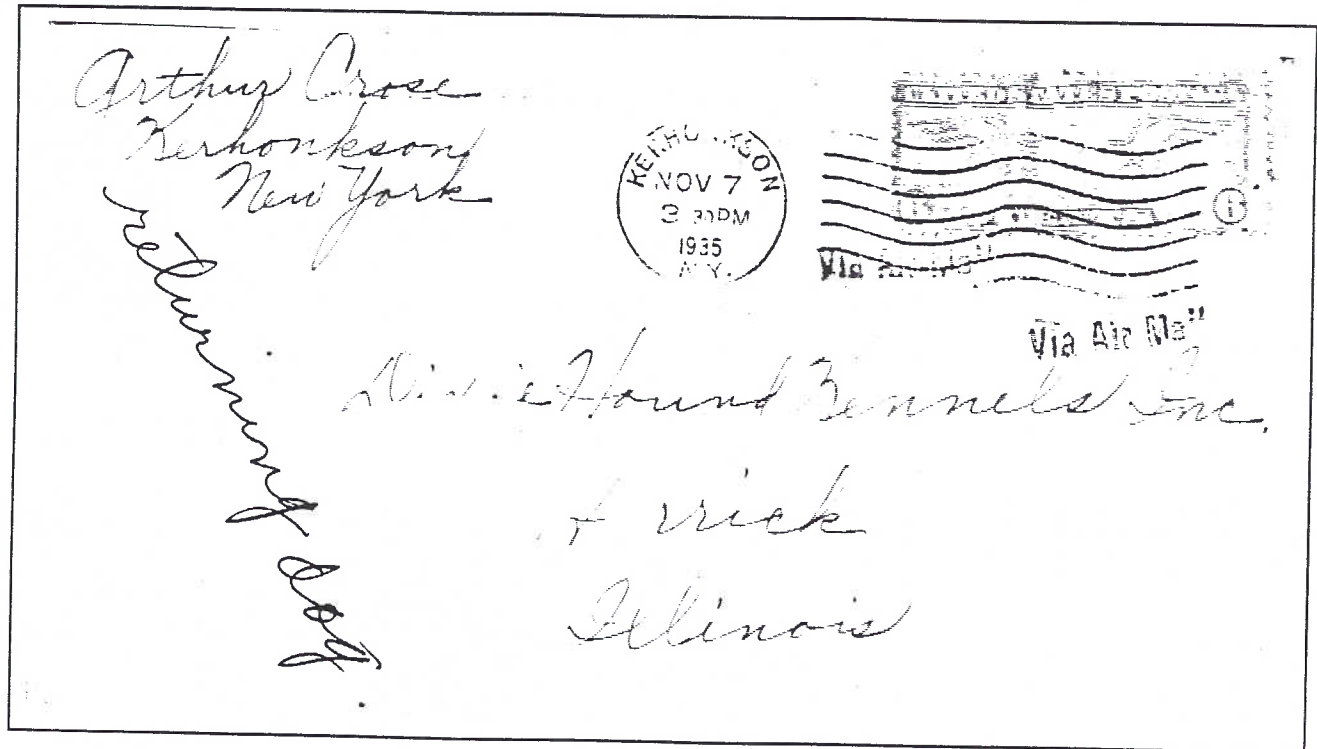 Arthur Crose
Kerhonkson
New York
returning dog
NOV 7
3 30 PM
1935
N.Y.
Via Air Mail
Via Air Mail
Hound Kennels Inc.
Illinois